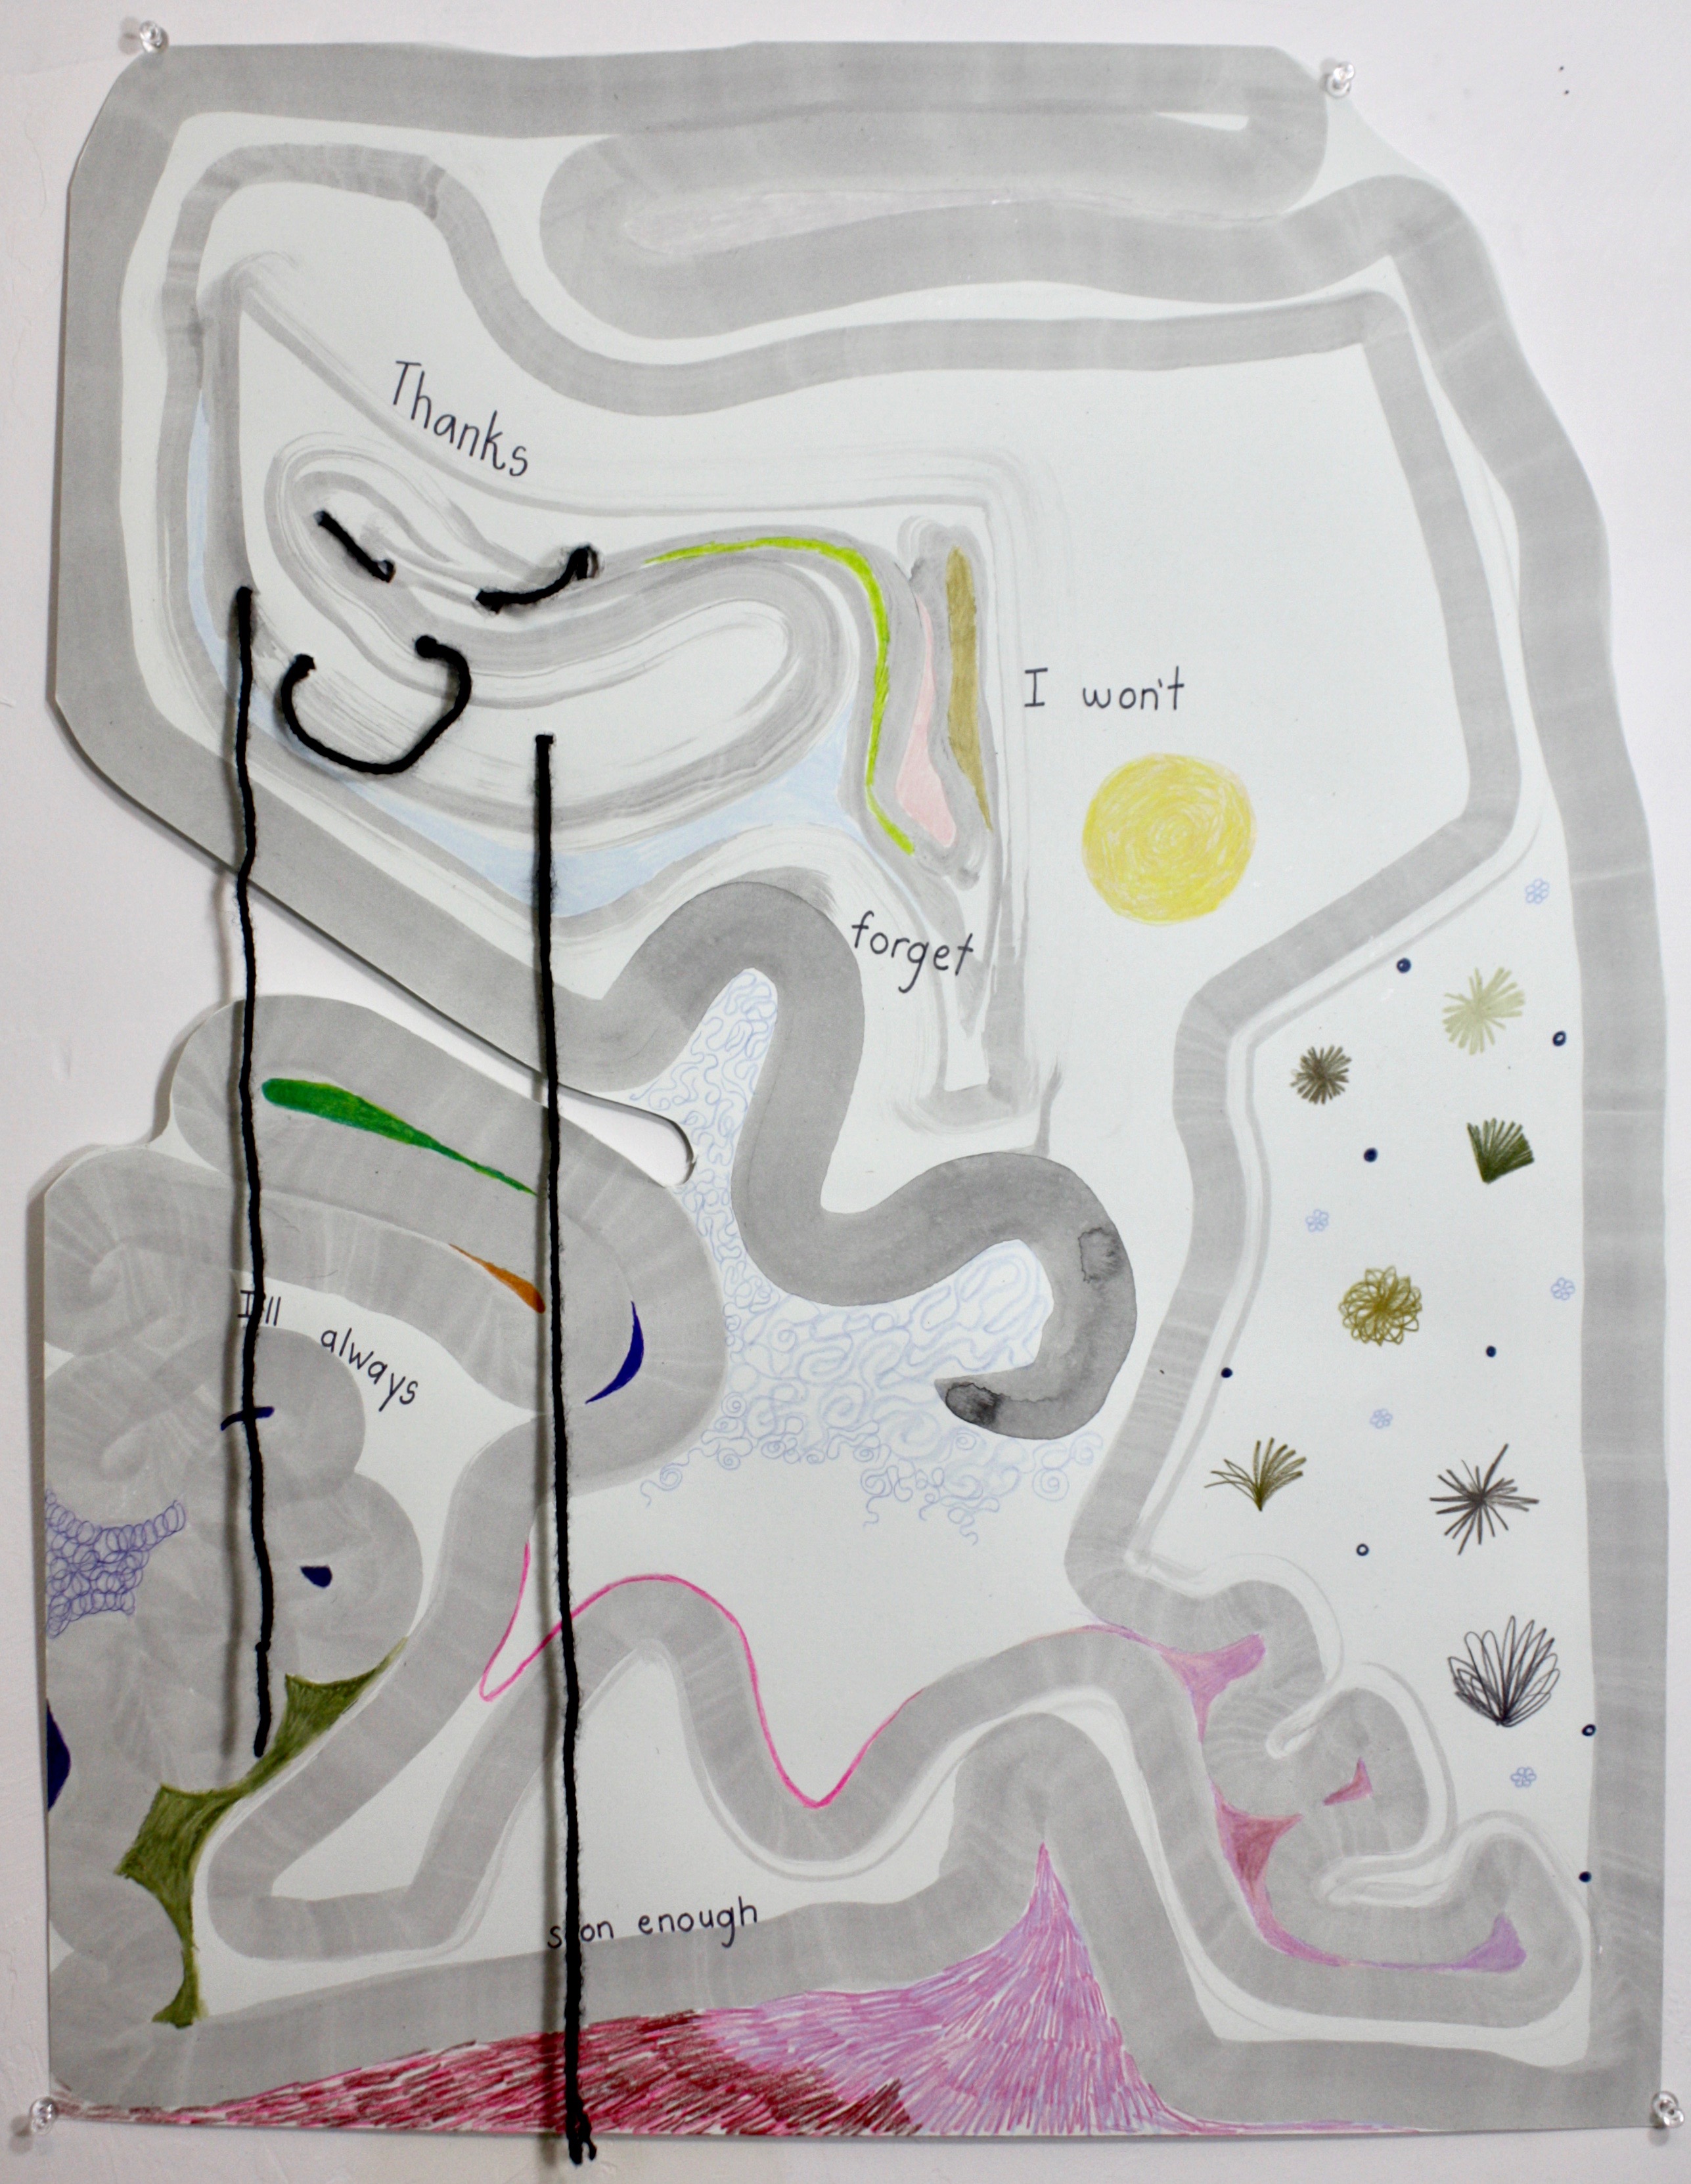 Thanks
I won't
forget
I'll always
soon enough